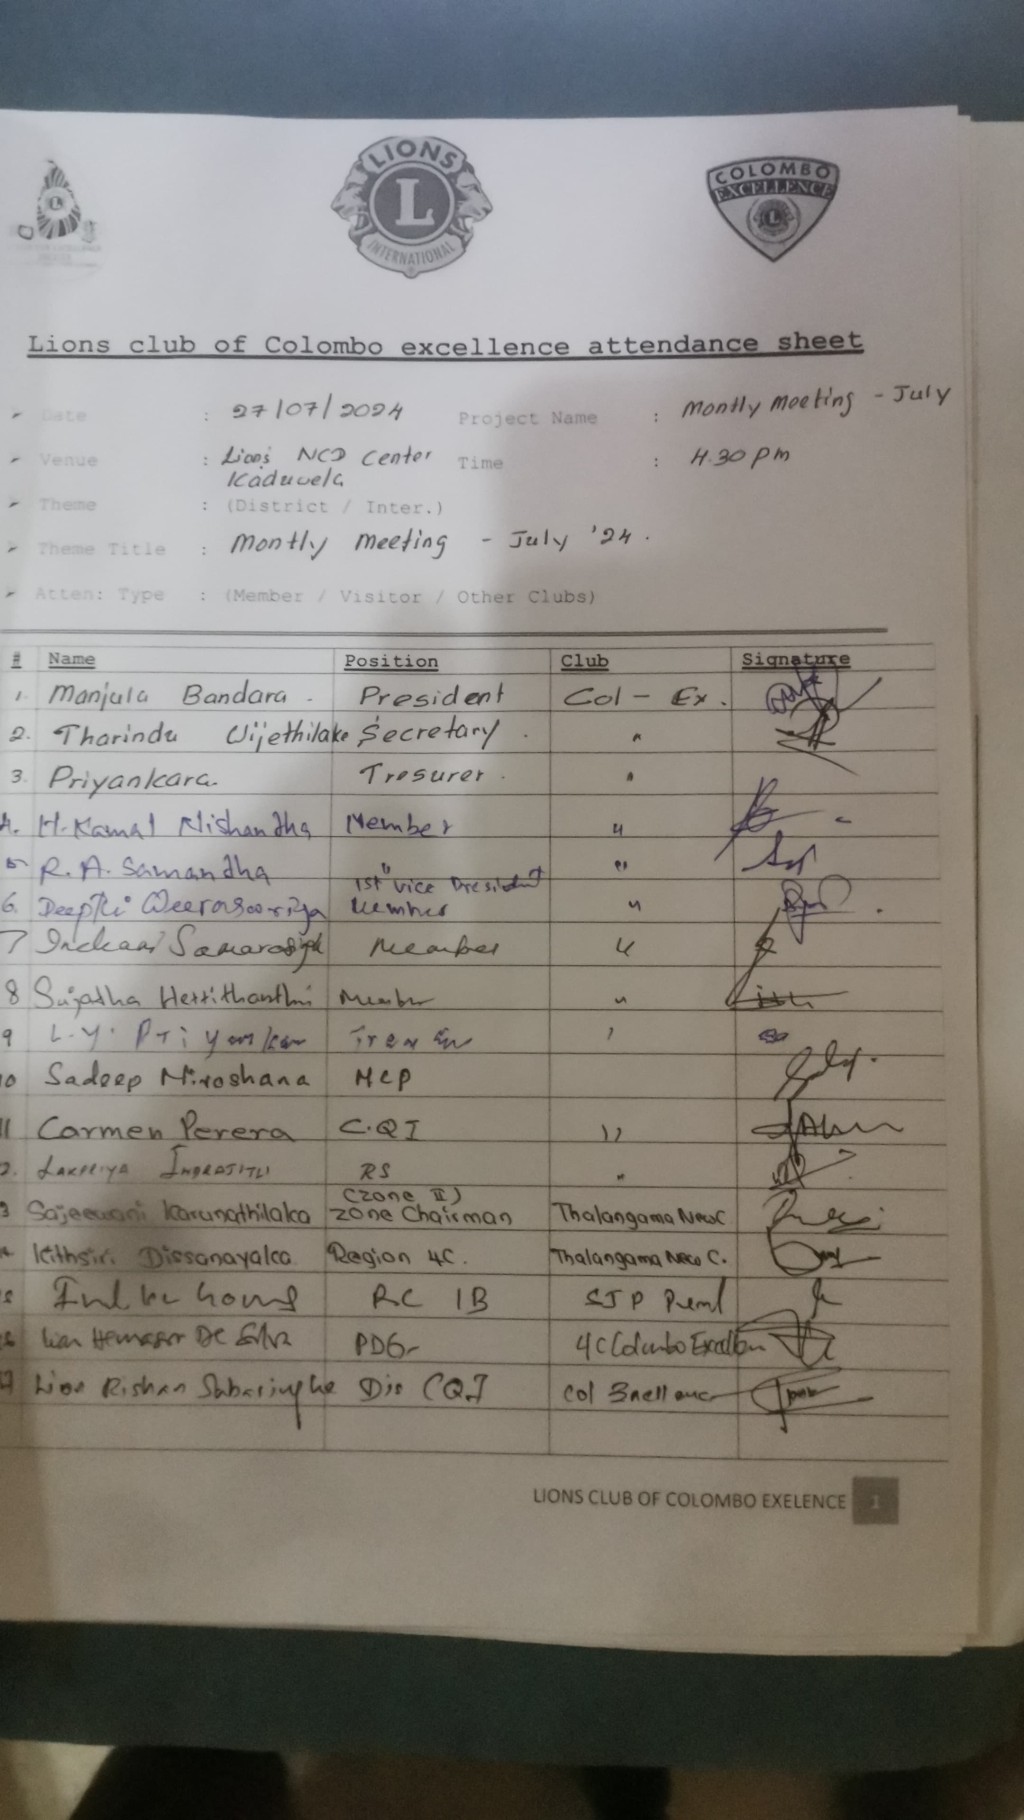 LIONS
L
INTERNATIONAL
COLOMBO
EXCELLENCE
Lions club of Colombo excellence attendance sheet
Date : 27/07/2024 Project Name : Montly Meeting - July
Venue : Lions NCD Center Time : 4.30 pm
Kaduwela
Theme : (District / Inter.)
Theme Title : Montly Meeting - July '24.
Atten: Type : (Member / Visitor / Other Clubs)
# Name Position Club Signature
1. Manjula Bandara - President Col - Ex.
2. Tharindu Wijethilake Secretary. "
3. Priyankara. Tresurer. "
4. H. Kamal Nishandha Member "
5 R. A. Samandha 1st vice President "
6. Deepthi Weerasooriya Member "
7 Samarasigh Member "
8 Sujatha Hettithanthri Member "
9 L.Y. Priyankar
10 Sadeep Niroshana MCP
11 Carmen Perera C.QI "
12. Lakpriya RS "
13 Sajeewani Karunathilaka (Zone II) Zone Chairman Thalangama New C
14 Kithsiri Dissanayaka Region 4C. Thalangama New C.
15 RC 1B SJP
16 Lion De Silva PDG 4C Colombo Excellen
17 Lion Rishan Dis CQI Col
LIONS CLUB OF COLOMBO EXELENCE 1